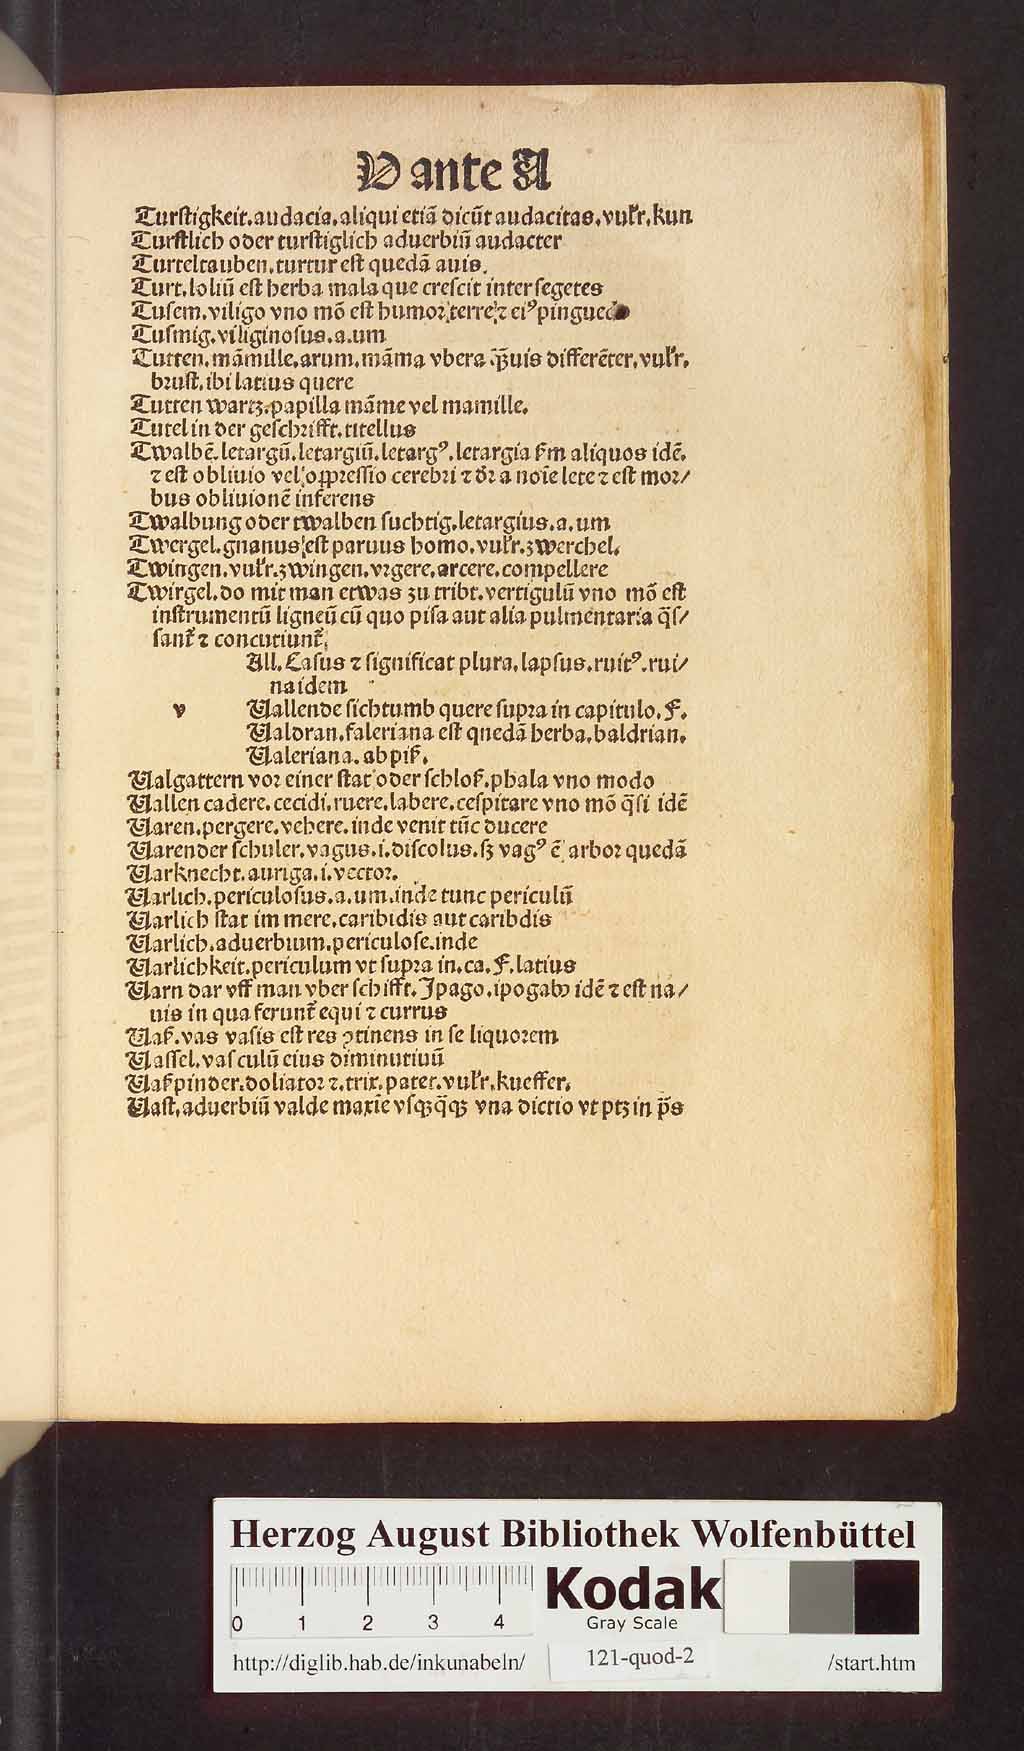 V ante A
Turstigkeit. audacia. aliqui etiã dicũt audacitas. vulr. kun
Turstlich oder turstiglich aduerbiũ audacter
Turteltauben. turtur est quedã auis.
Turt. loliũ est herba mala que crescit inter segetes
Tusem. viligo vno mõ est humor terre ⁊ eiꝰ pingued
Tusmig. viliginosus. a. um
Tutten. mãmille. arum. mãma vbera q̃uis differẽter. vulr.
brust. ibi latius quere
Tutten wartz. papilla mãme vel mamille.
Tutel in der geschrifft. titellus
Twalbẽ. letargũ. letargiũ. letargꝰ. letargia ẜm aliquos idẽ.
⁊ est obliuio vel oppressio cerebri ⁊ dr̃ a noĩe lete ⁊ est mor/
bus obliuionẽ inferens
Twalbung oder twalben suchtig. letargius. a. um
Twergel. gnanus est paruus homo. vulr. zwerchel.
Twingen. vulr. zwingen. vrgere. arcere. compellere
Twirgel. do mit man etwas zu tribt. vertigulũ vno mõ est
instrumentũ ligneũ cũ quo pisa aut alia pulmentaria q̃s/
sant̃ ⁊ concutiunt̃.
All. Casus ⁊ significat plura. lapsus. ruitꝰ. rui/
na idem
v Uallende sichtumb quere supra in capitulo. F.
Ualdran. faleriana est quedã herba. baldrian.
Ualeriana. ab piß.
Ualgattern vor einer stat oder schloß. phala vno modo
Uallen cadere. cecidi. ruere. labere. cespitare vno mõ q̃si idẽ
Uaren. pergere. vehere. inde venit tũc ducere
Uarender schuler. vagus. i. discolus. sꝫ vagꝰ ẽ arbor quedã
Uarknecht. auriga. i. vector.
Uarlich. periculosus. a. um. inde tunc periculũ
Uarlich stat im mere. caribidis aut caribdis
Uarlich. aduerbium. periculose. inde
Uarlichkeit. periculum vt supra in. ca. F. latius
Uarn dar vff man vber schifft. Ipago. ipogabo idẽ ⁊ est na/
uis in qua ferunt̃ equi ⁊ currus
Uaß. vas vasis est res ꝯtinens in se liquorem
Uassel. vasculũ eius diminutiuũ
Uaßpinder. doliator ⁊. trix. pater. vulr. kueffer.
Uast. aduerbiũ valde maxĩe vsqꝫq̃qꝫ vna dictio vt ptꝫ in p̃s
Herzog August Bibliothek Wolfenbüttel
0 1 2 3 4
Kodak
Gray Scale
http://diglib.hab.de/inkunabeln/ 121-quod-2 /start.htm